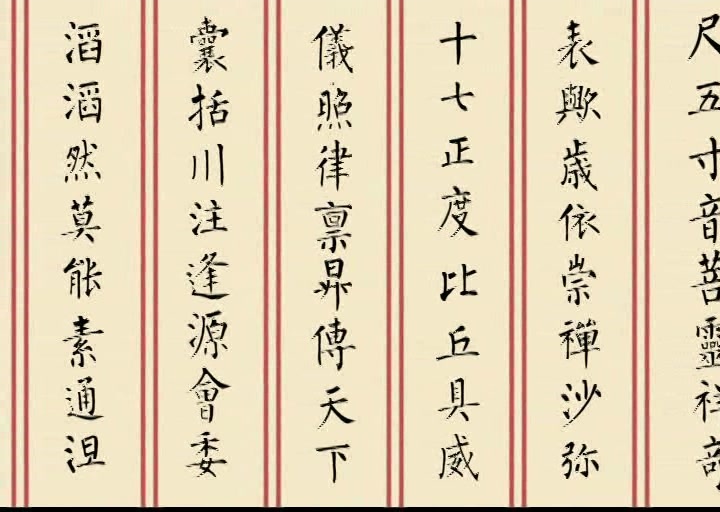 尺五寸音菩靈祥
表歟歳依崇禪沙弥
十七正度比丘具威
儀照律禀昇傳天下
囊括川注逢源會委
滔滔然莫能素通涅